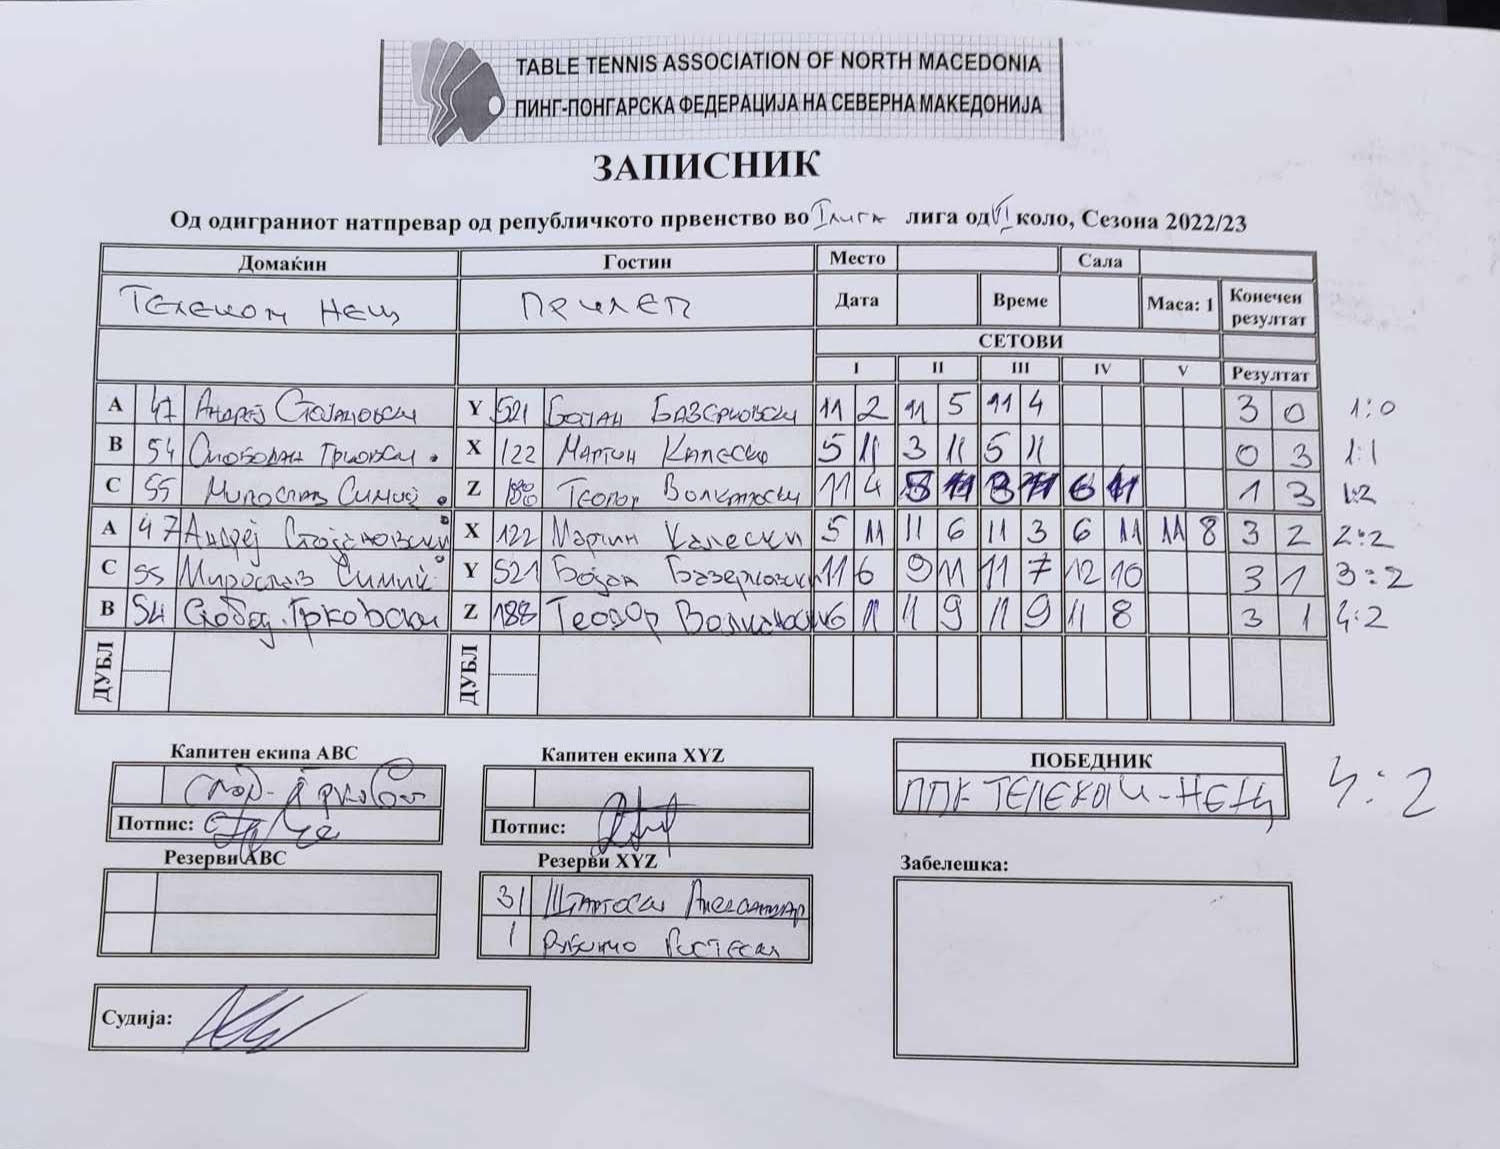 TABLE TENNIS ASSOCIATION OF NORTH MACEDONIA
ПИНГ-ПОНГАРСКА ФЕДЕРАЦИЈА НА СЕВЕРНА МАКЕДОНИЈА
ЗАПИСНИК
Од одиграниот натпревар од републичкото првенство во I лига лига од VI коло, Сезона 2022/23
Домаќин Гостин Место Сала
Телеком Нец Прилеп Дата Време Маса: 1 Конечен резултат
СЕТОВИ
I II III IV V Резултат
A 47 Андреј Стојановски Y 521 Бојан Базерковски 11 2 11 5 11 4 3 0 1:0
B 54 Слободан Грковски X 122 Мартин Калески 5 11 3 11 5 11 0 3 1:1
C 55 Мирослав Симиќ Z 188 Теодор 11 4 6 11 1 3 1:2
A 47 Андреј Стојановски X 122 Мартин Калески 5 11 11 6 11 3 6 11 11 8 3 2 2:2
C 55 Мирослав Симиќ Y 521 Бојан Базерковски 11 6 9 11 11 7 12 10 3 1 3:2
B 54 Слобод. Грковски Z 188 Теодор 6 11 11 9 11 9 11 8 3 1 4:2
ДУБЛ ДУБЛ
Капитен екипа ABC Капитен екипа XYZ ПОБЕДНИК
ППК ТЕЛЕКОМ-НЕЦ 4:2
Потпис: Потпис:
Резерви ABC Резерви XYZ Забелешка:
31
1 Ристески
Судија: